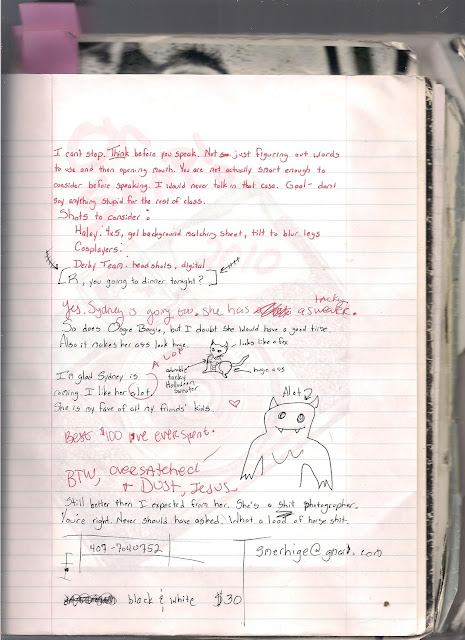 I can't stop. Think before you speak. Not just figuring out words
to use and then opening mouth. You are not actually smart enough to
consider before speaking. I would never talk in that case. Goal - don't
say anything stupid for the rest of class.
Shots to consider:
Haley: 4x5, gel background matching sheet, tilt to blur legs
Cosplayers:
Derby Team: headshots, digital
R, you going to dinner tonight?
Yes. Sydney is going too. she has a tacky sweater.
So does Oogie Boogie, but I doubt she would have a good time.
Also it makes her ass look huge.
looks like a fox
adorable
tacky
Halloween
sweater
huge ass
I'm glad Sydney is
coming. I like her alot.
A LOT
She is my fave of all my friends' kids.
Alot?
Best $100 I've ever spent.
BTW, oversatched
& Dust, Jesus
Still better then I expected from her. She's a shit photographer.
You're right. Never should have asked. What a load of horse shit.
407-7040752
smerhige@gmail.com
black & white $30